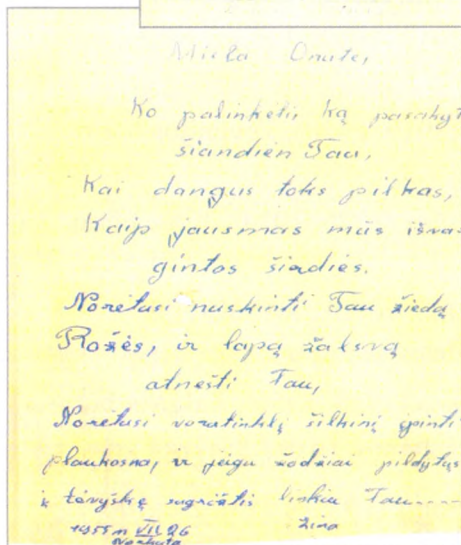 Miela Onute,
Ko palinkėti, ką pasakyt
šiandien Tau,
Kai dangus toks pilkas,
Kaip jausmas mūs išva-
gintos širdies.
Norėtusi nuskinti Tau žiedą
Rožės, ir lapą žalsvą
atnešti Tau,
Norėtusi voratinklį šilkinį įpinti
plaukosna, ir jeigu žodžiai pildytųs
į tėvyškę sugrįžtis linkiu Tau----
1955 m VII 26
Zina
Norkuta